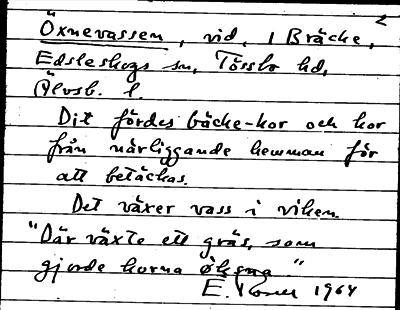 2
Öxnevassen, vid, 1 Bräcke,
Edsleskogs sn, Tössbo hd,
Älvsb. l.
Dit fördes bäcke-kor och kor
från närliggande hemman för
att betäckas.
Det växer vass i viken.
"Där växte ett gräs, som
gjorde korna öxna."
E. 1964